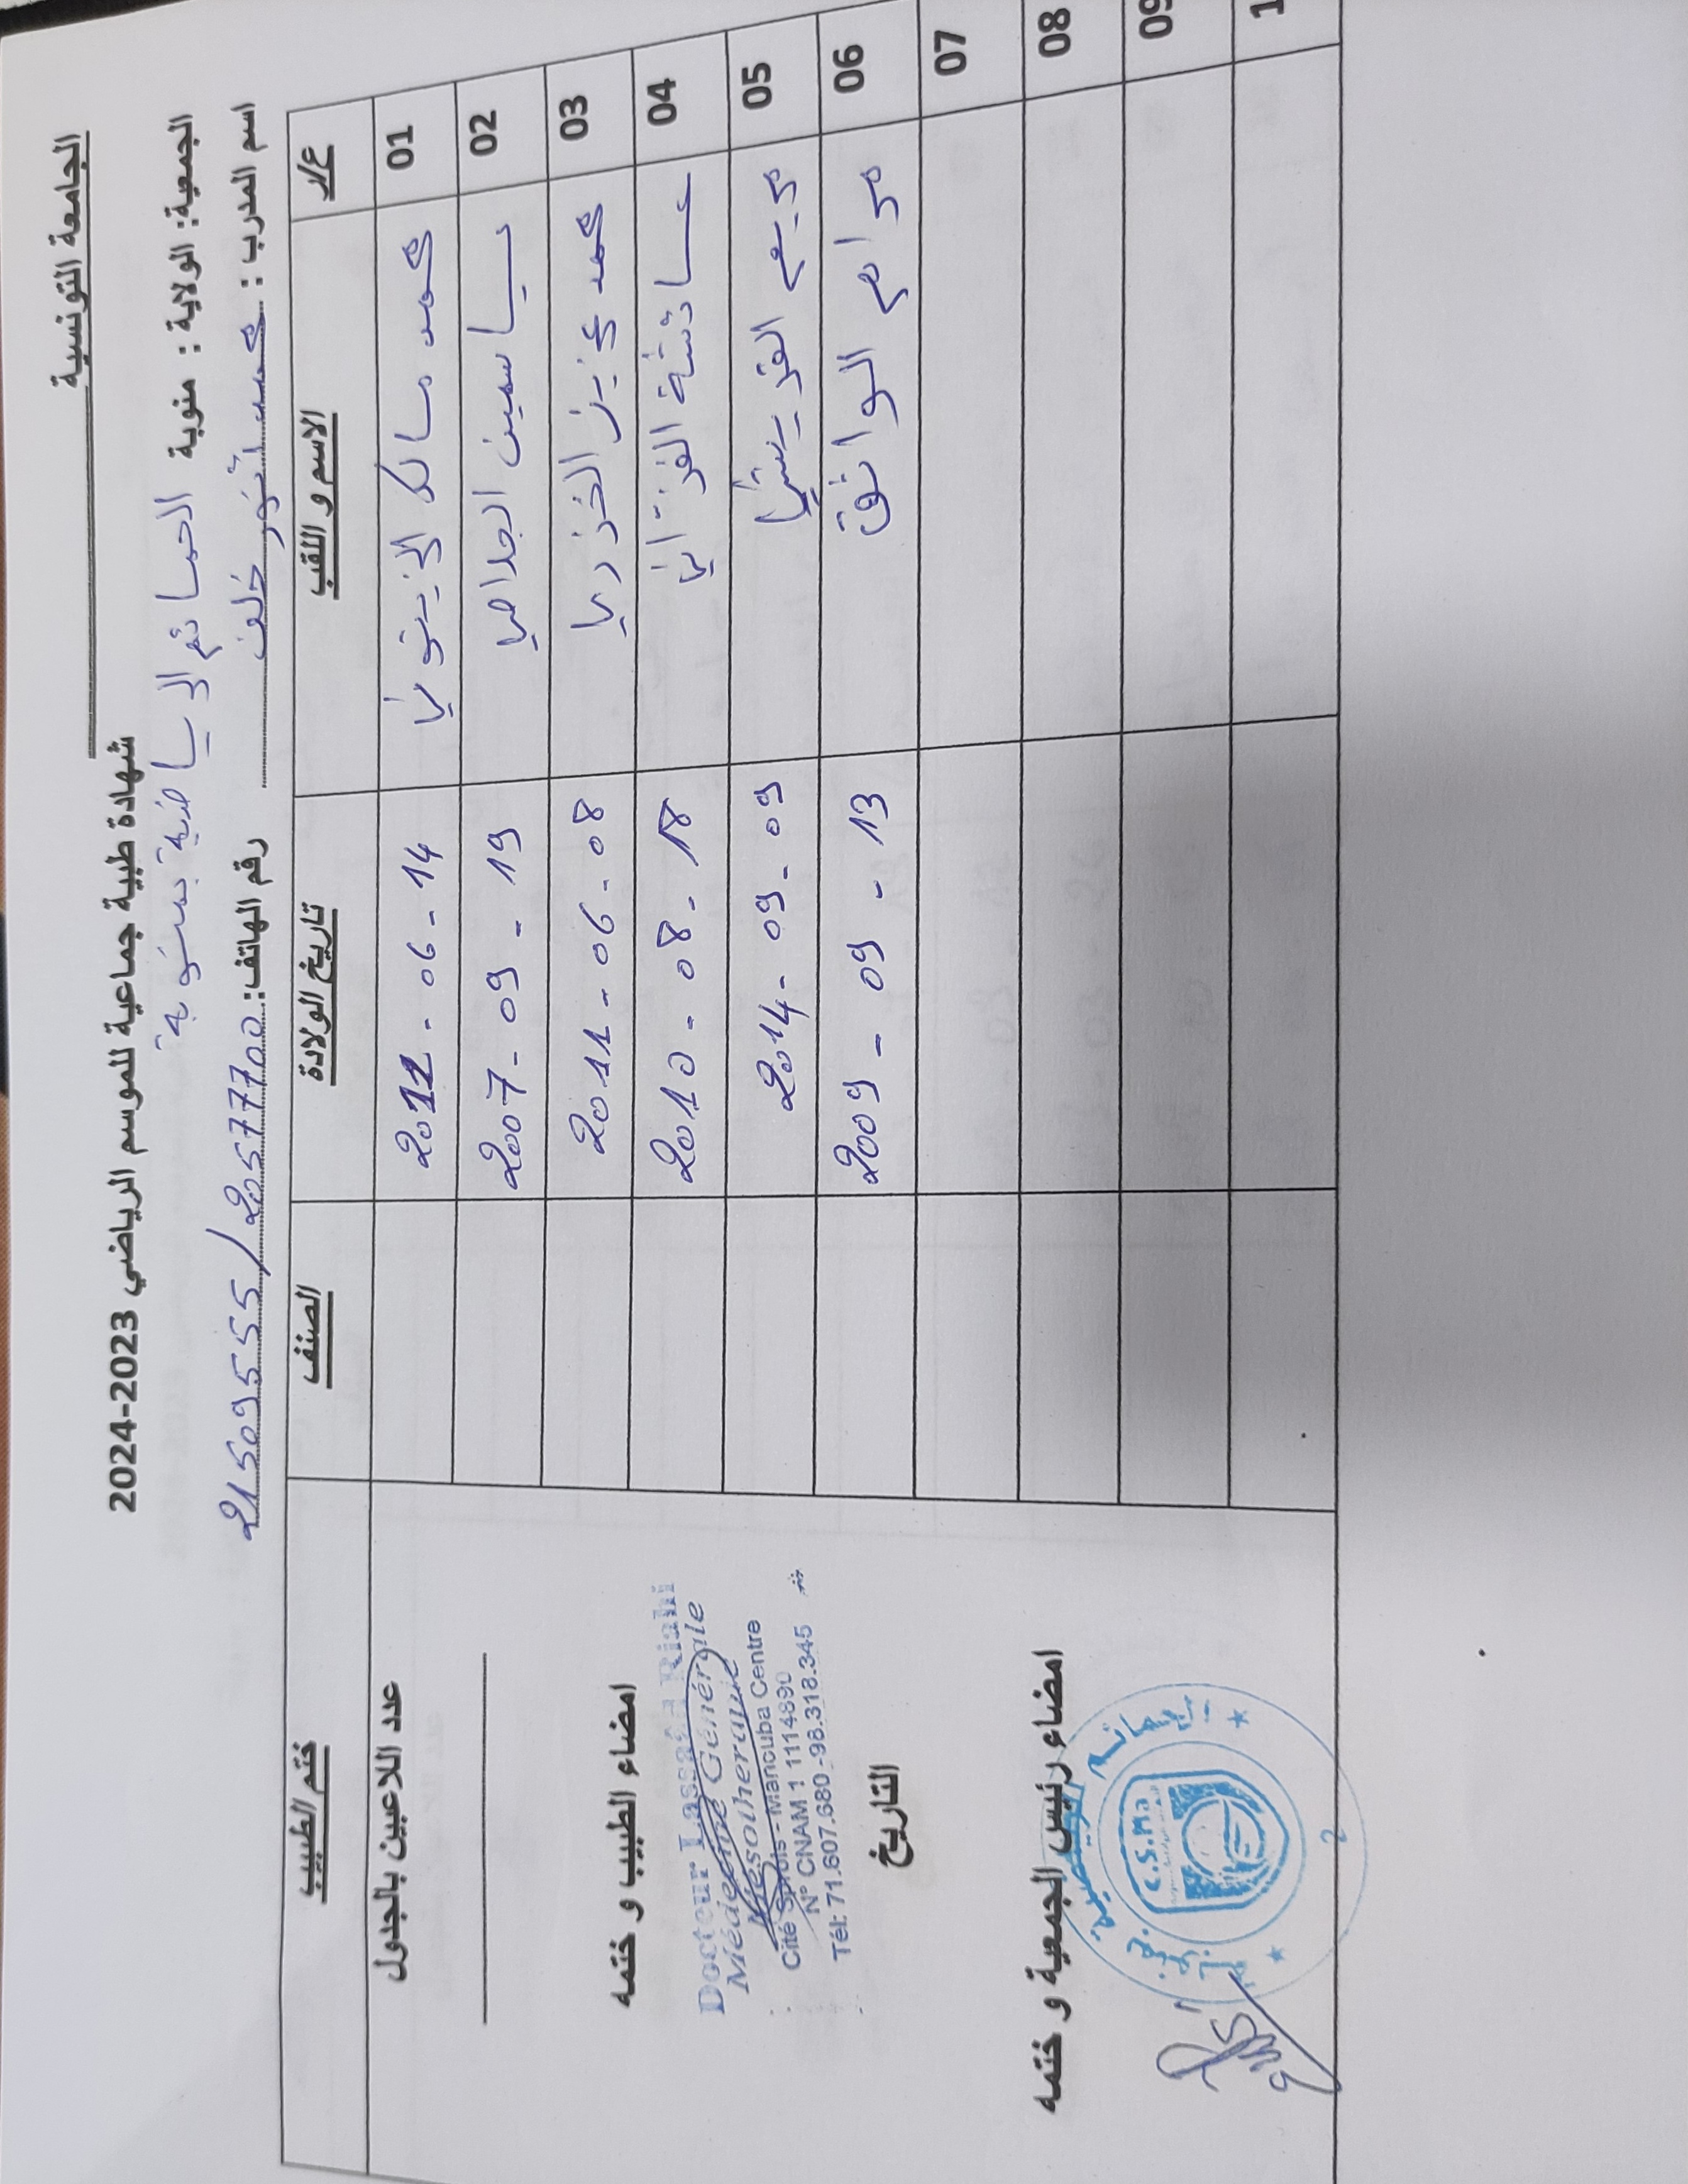 الجامعة التونسية
شهادة طبية جماعية للموسم الرياضي 2023-2024
الجمعية: الولاية : منوبة الحمائم الرياضية بمنوبة
اسم المدرب : محمد أنور خلف رقم الهاتف: 21509555 / 20577700
ع/ر الاسم و اللقب تاريخ الولادة الصنف ختم الطبيب
01 محمد مالك الزيتوني 2012 - 06 - 14
02 ياسمين الجلاصي 2007 - 09 - 19
03 محمد عزيز الخزري 2011 - 06 - 08
04 عائشة الفزاني 2010 - 08 - 18
05 مريم القريشي 2014 - 09 - 09
06 مرام الواثق 2009 - 09 - 13
07
08
09
عدد اللاعبين بالجدول
امضاء الطبيب و ختمه
Docteur Lassâd Riahi
Médecine Générale
Mésothérapie
Cité - Manouba Centre
N° CNAM 1 1114890
Tél: 71.607.680 - 98.318.345
التاريخ
امضاء رئيس الجمعية و ختمه
C.S.Ma